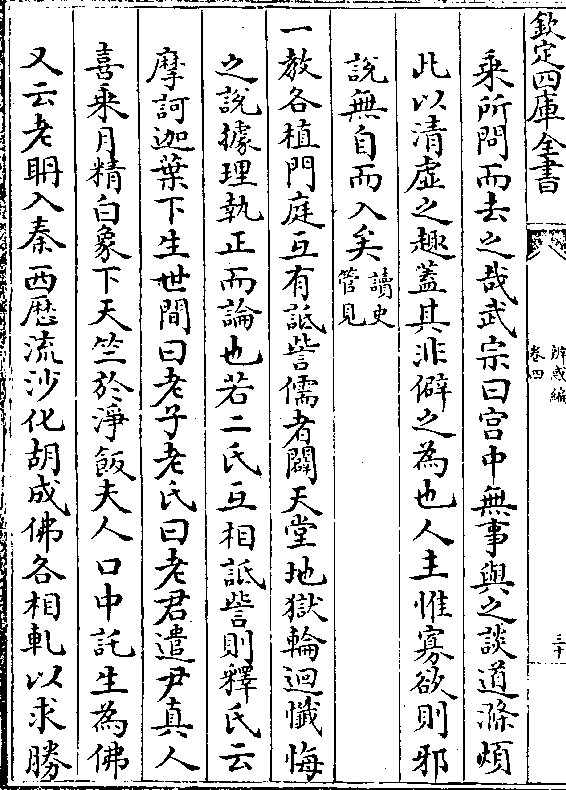 欽定四庫全書
辨惑編
卷四
三十
乘所問而去之哉武宗曰宫中無事與之談道滌煩
此以清虛之趣蓋其非僻之為也人主惟寡欲則邪
說無自而入矣讀史管見
一教各植門庭互有詆訾儒者闢天堂地獄輪迴懺悔
之說據理執正而論也若二氏互相詆訾則釋氏云
摩訶迦葉下生世間曰老子老氏曰老君遣尹真人
喜乘月精白象下天竺於淨飯夫人口中託生為佛
又云老聃入秦西歴流沙化胡成佛各相軋以求勝